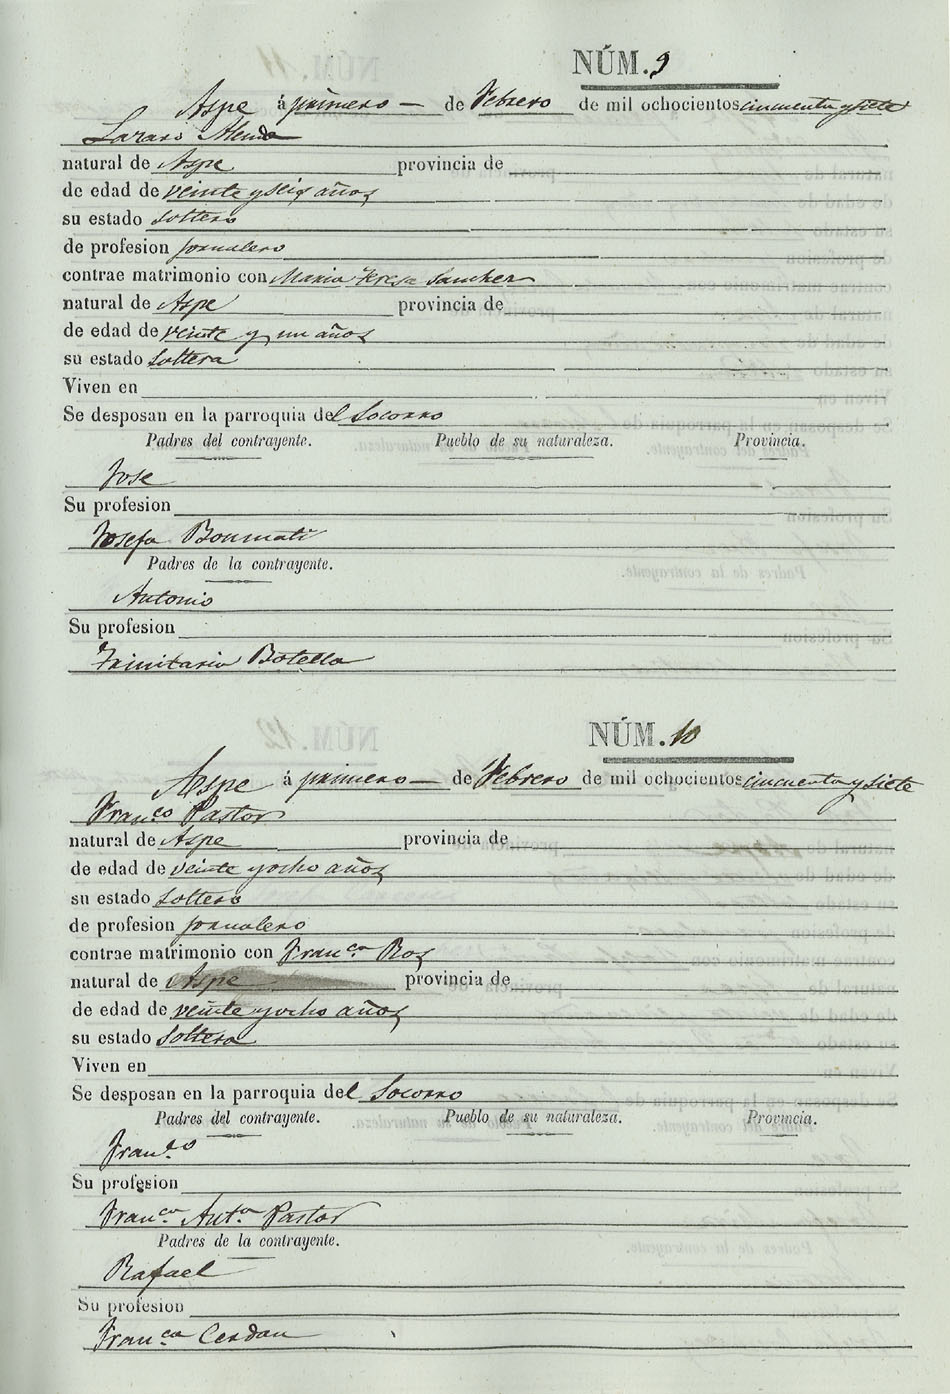 NÚM. 9
Aspe á primero — de Febrero de mil ochocientos cincuenta y siete
Lazaro Alenda
natural de Aspe provincia de
de edad de veinte y seis años
su estado soltero
de profesion jornalero
contrae matrimonio con Maria Teresa Sanchez
natural de Aspe provincia de
de edad de veinte y un años
su estado soltera
Viven en
Se desposan en la parroquia del Socorro
Padres del contrayente. Pueblo de su naturaleza. Provincia.
Jose
Su profesion
Josefa Bonmati
Padres de la contrayente.
Antonio
Su profesion
Trinitaria Botella
NÚM. 10
Aspe á primero — de Febrero de mil ochocientos cincuenta y siete
Fran.co Pastor
natural de Aspe provincia de
de edad de veinte y ocho años
su estado soltero
de profesion jornalero
contrae matrimonio con Fran.ca Ros
natural de Aspe provincia de
de edad de veinte y ocho años
su estado soltera
Viven en
Se desposan en la parroquia del Socorro
Padres del contrayente. Pueblo de su naturaleza. Provincia.
Fran.co
Su profesion
Fran.ca Ant.a Pastor
Padres de la contrayente.
Rafael
Su profesion
Fran.ca Cerdan